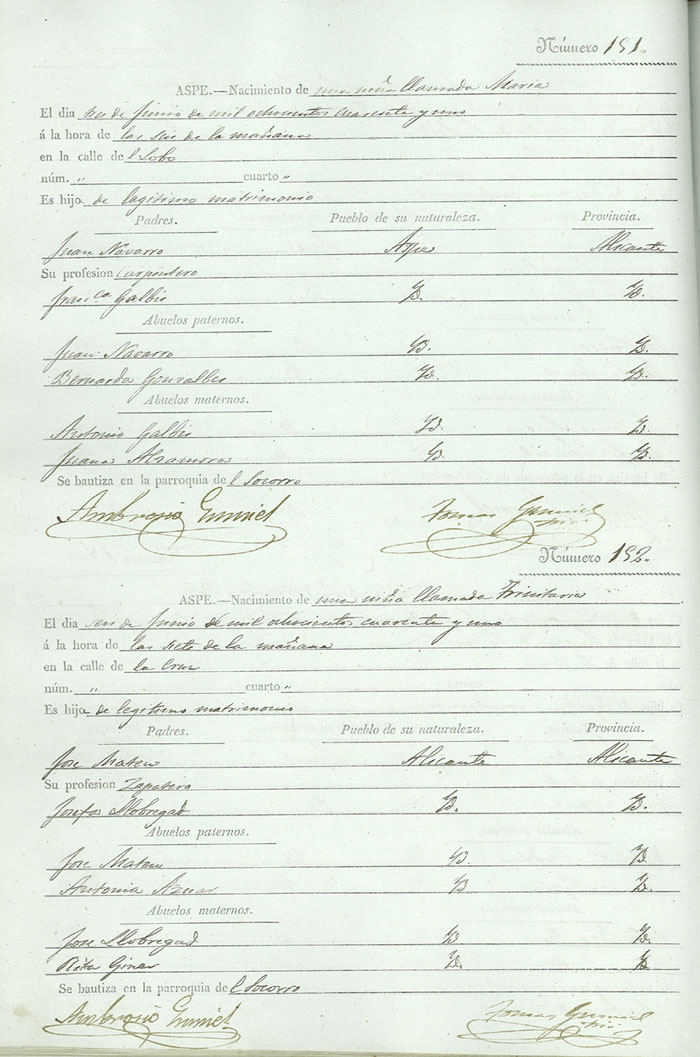 Número 151.
ASPE.—Nacimiento de una niña llamada Maria
El dia tres de Junio de mil ochocientos cuarenta y uno
á la hora de las seis de la mañana
en la calle de l Lobo
núm. " cuarto "
Es hija de legitimo matrimonio
Padres. Pueblo de su naturaleza. Provincia.
Juan Navarro Aspe Alicante
Su profesion Carpintero
Fran.ca Galbis Yd. Yd.
Abuelos paternos.
Juan Navarro Yd. Yd.
Bernarda Gonzalbes Yd. Yd.
Abuelos maternos.
Antonio Galbis Yd. Yd.
Juana Alzamora Yd. Yd.
Se bautiza en la parroquia de l Socorro
Ambrosio Gumiel Tomas Gumiel
Número 152.
ASPE.—Nacimiento de una niña llamada Trinitaria
El dia seis de Junio de mil ochocientos cuarenta y uno
á la hora de las siete de la mañana
en la calle de la Cruz
núm. " cuarto "
Es hija de legitimo matrimonio
Padres. Pueblo de su naturaleza. Provincia.
Jose Mateu Alicante Alicante
Su profesion Zapatero
Josefa Llobregad Yd. Yd.
Abuelos paternos.
Jose Mateu Yd. Yd.
Antonia Aznar Yd Yd.
Abuelos maternos.
Jose Llobregad Yd Yd.
Rita Giner Yd. Yd
Se bautiza en la parroquia de l Socorro
Ambrosio Gumiel Tomas Gumiel